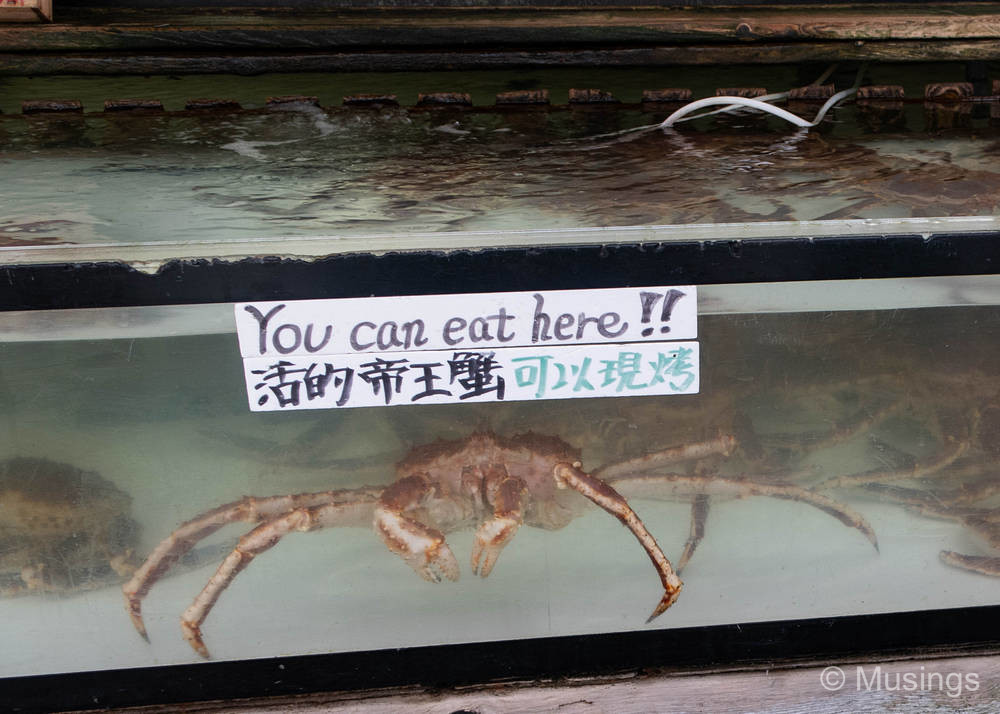 You can eat here!!
活的帝王蟹可以現烤
© Musings